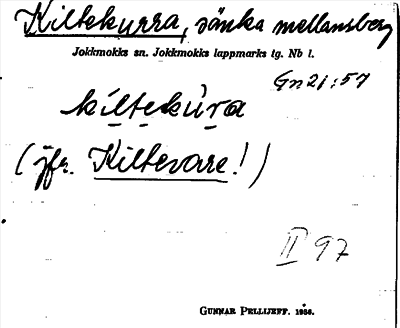 Kiltekurra, sänka mellan berg
Jokkmokks sn. Jokkmokks lappmarks tg. Nb l.
Gn 21:57
kiltekùra
(jfr. Kiltevare!)
II 97
GUNNAR PELLIJEFF. 1956.